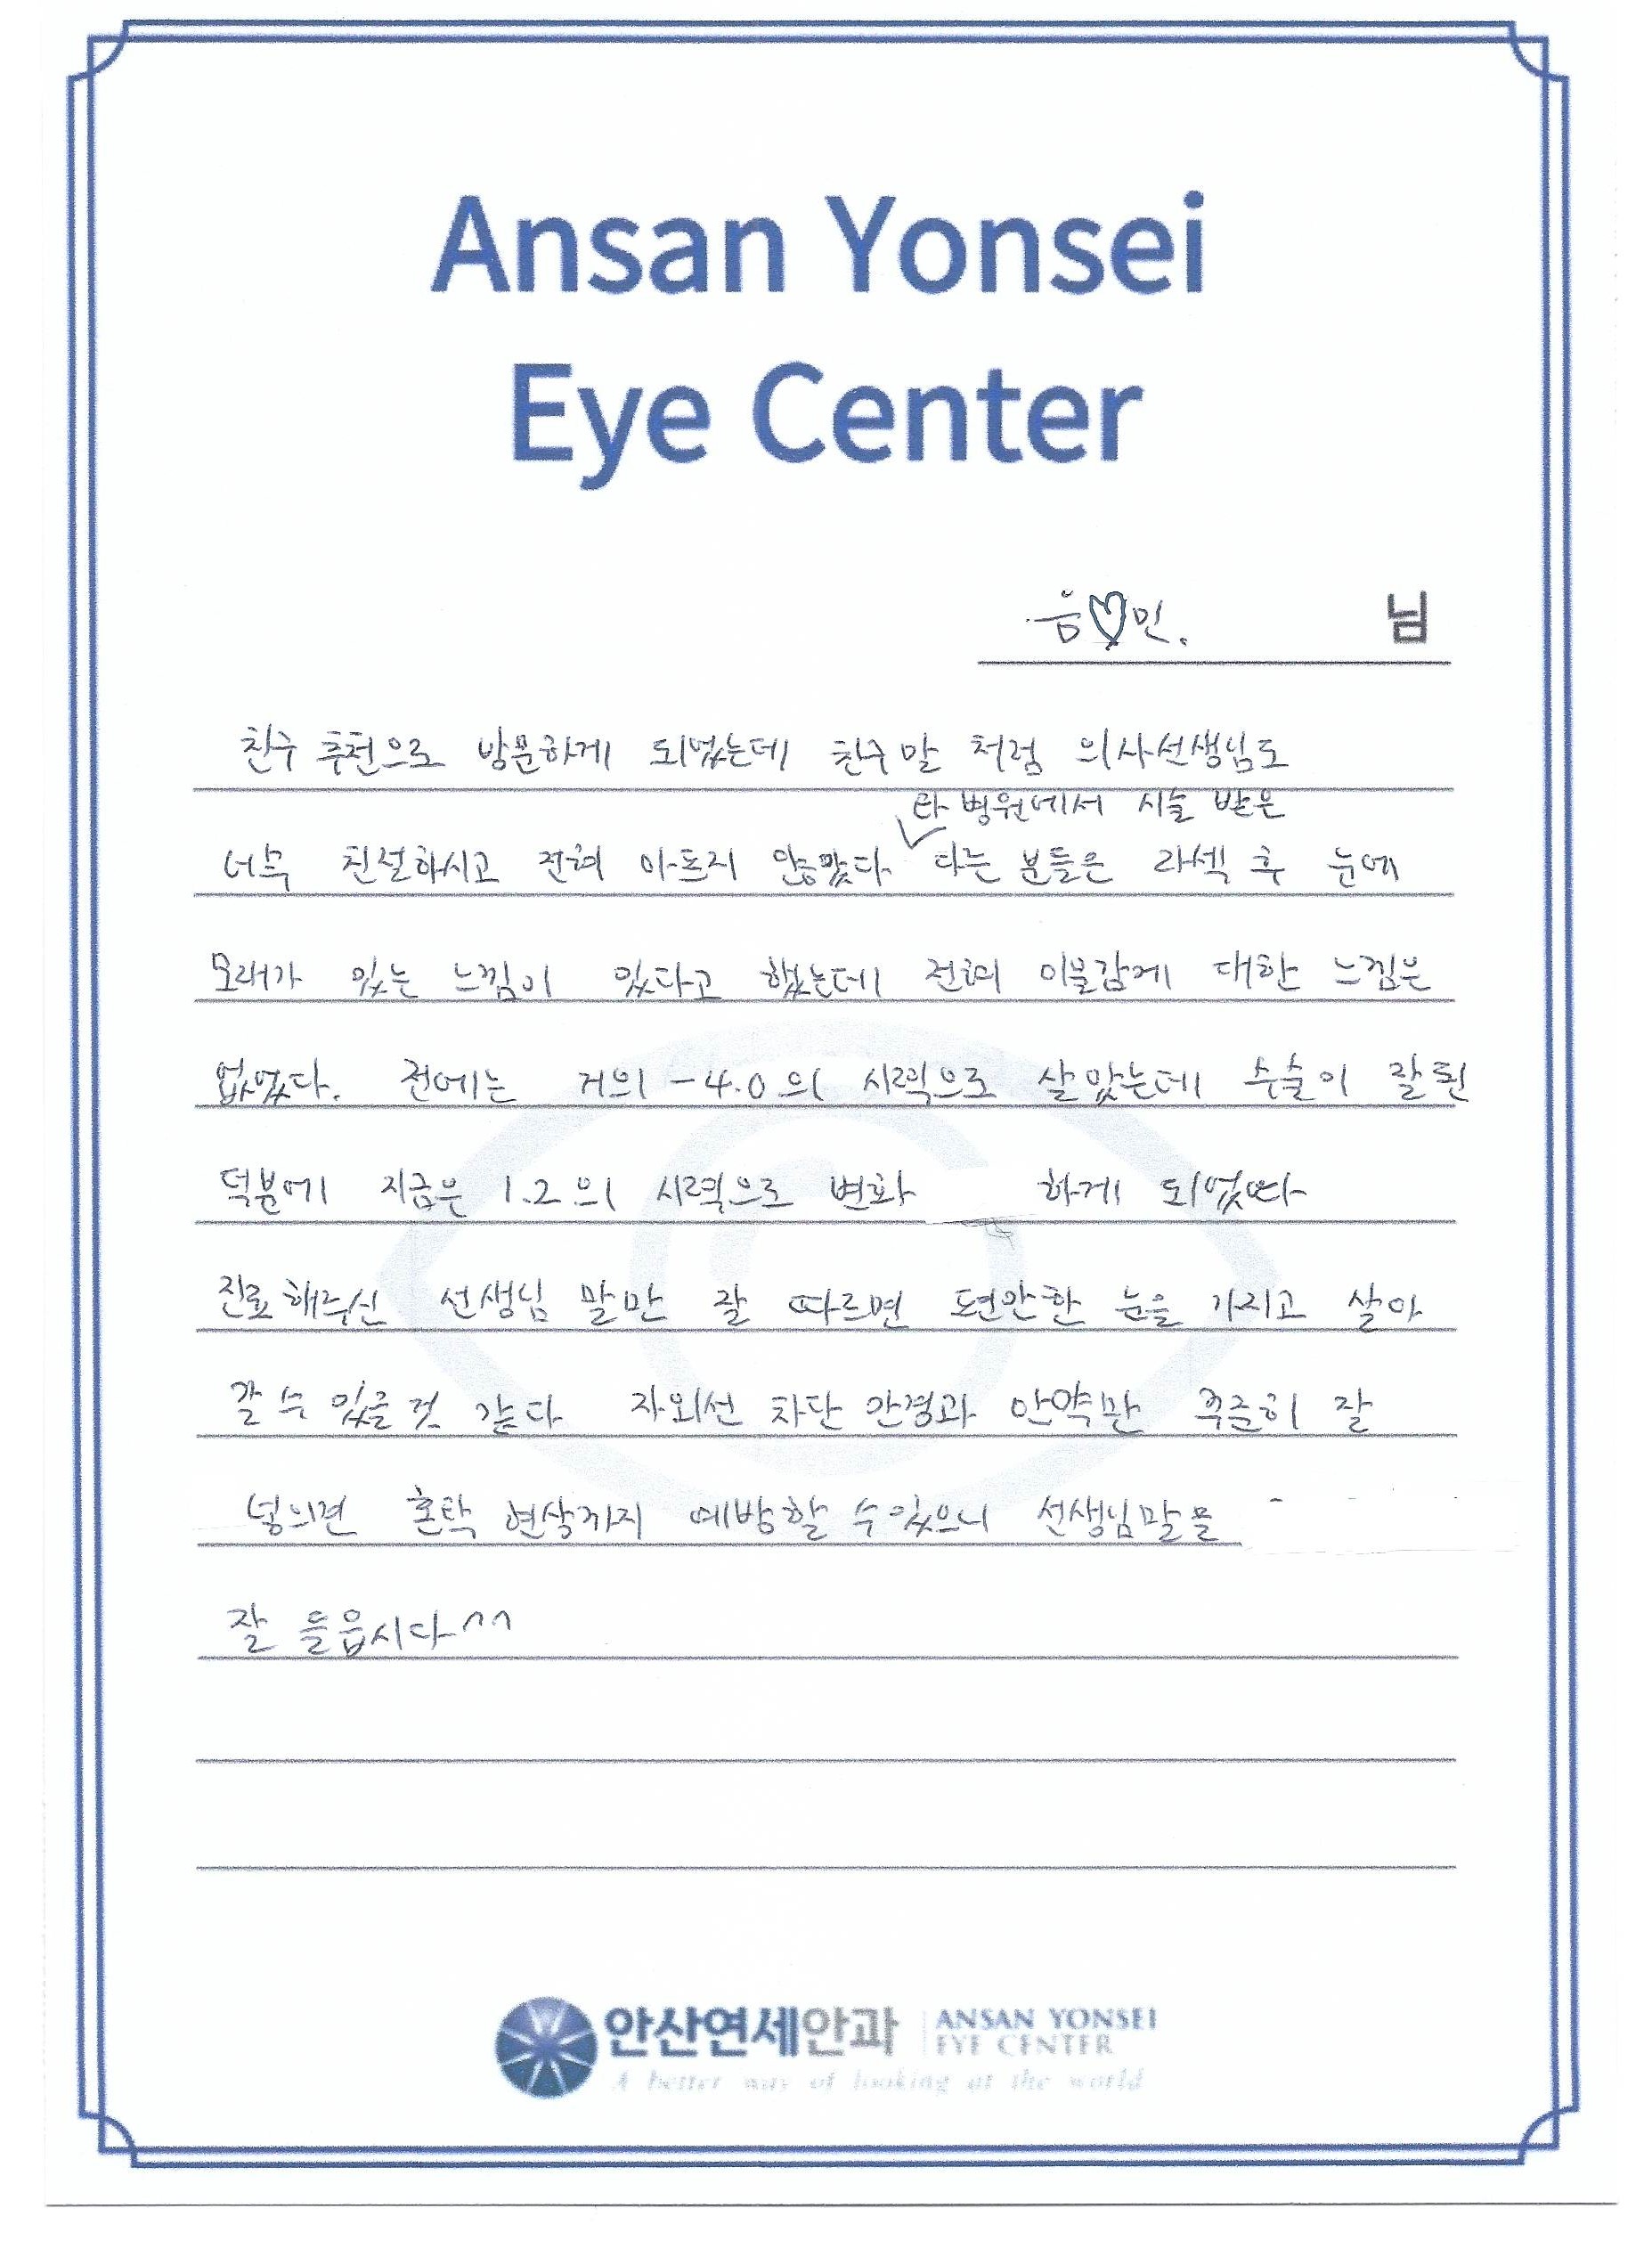 Ansan Yonsei
Eye Center
음♡민. 님
친구 추천으로 방문하게 되었는데 친구말 처럼 의사선생님도
타 병원에서 시술 받은
너무 친절하시고 전혀 아프지 않았다 다는 분들은 라섹 후 눈에
모래가 있는 느낌이 있다고 했는데 전혀 이물감에 대한 느낌은
없었다. 전에는 거의 -4.0의 시력으로 살았는데 수술이 잘된
덕분에 지금은 1.2의 시력으로 변화 하게 되었따
진료해주신 선생님 말만 잘 따르면 편안한 눈을 가지고 살아
갈 수 있을것 같다 자외선 차단 안경과 안약만 꾸준히 잘
넣으면 혼탁 현상까지 예방할 수있으니 선생님말을
잘 들읍시다^^
안산연세안과 ANSAN YONSEI
EYE CENTER
A better way of looking at the world